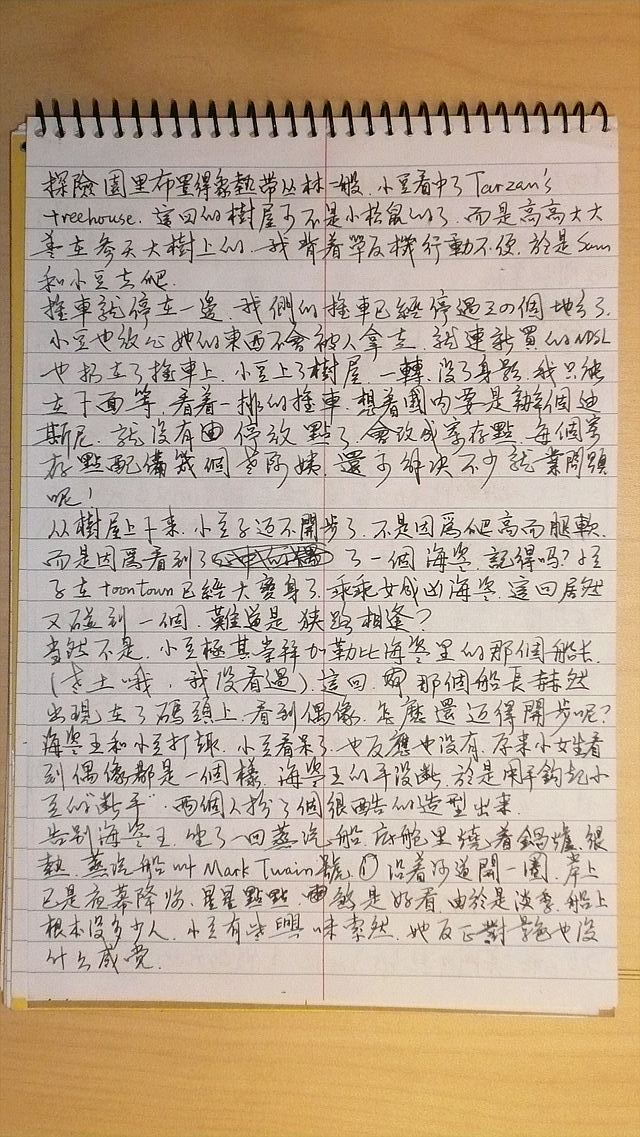 探險園里布置得象熱帶丛林一般.小豆看中了Tarzan's
treehouse.這回的樹屋可不是小松鼠的了.而是高高大大
蓋在參天大樹上的.我背着單反機行動不便.於是Sam
和小豆去爬.
推車就停在一邊.我們的推車已經停過工o個地方了.
小豆也放心她的東西不會被人拿走.就連新買的NDSL
也扔在了推車上.小豆上了樹屋一轉.没了身影.我只能
在下面等.看着一排的推車.想着國内要是辦個迪
斯尼.就没有停放點了.會改成寄存點.每個寄
存點配備幾個老阿姨.還可解决不少就業問題
呢!
从樹屋上下来.小豆子迈不開步了.不是因爲爬高而腿軟.
而是因爲看到了了一個海盗.記得吗?小豆
子在toontown已經大變身了.乖乖女成凶海盗.這回居然
又碰到一個.難道是狹路相逢?
当然不是.小豆極其崇拜加勒比海盗里的那個船长.
(老土哦,我没看過).這回.那個船長赫然
出現在了碼頭上.看到偶像.怎麽還迈得開步呢?
海盗王和小豆打趣.小豆看呆了.也反應也没有.原来小女生看
到偶像都是一個樣.海盗王的手没断.於是用手鈎起小
豆的"断手".两個人扮了個很酷的造型出来.
告别海盗王.坐了一回蒸汽船.底舱里燒着鍋爐.很
熱.蒸汽船叫Mark Twain號.沿着河道開一圈.岸上
已是夜幕降临.星星點點煞是好看.由於是淡季.船上
根本没多少人.小豆有些興味索然.她反正對景色也没
什么感觉.